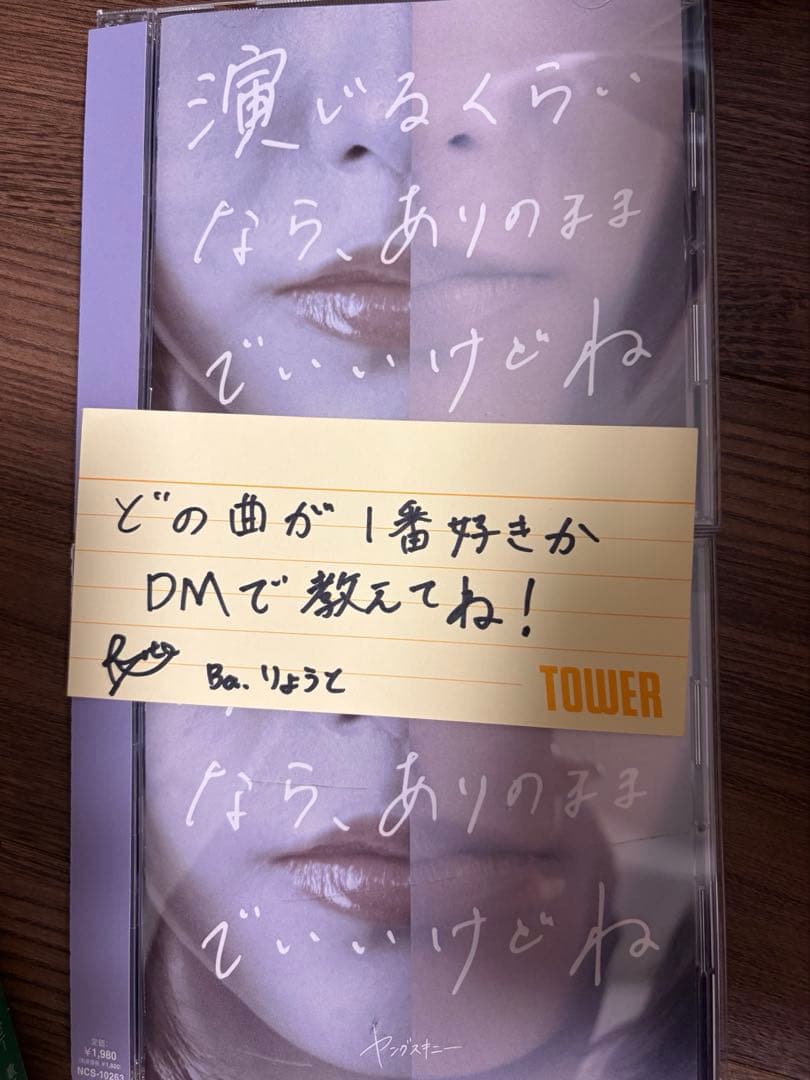 演じるくらい
なら、ありのまま
でいいけどね
どの曲が1番好きか
DMで教えてね!
Ba. りょうと
TOWER
なら、ありのまま
でいいけどね
ヤングスキニー
定価:
¥1,980
(税抜価格 ¥1,800)
NCS-10263